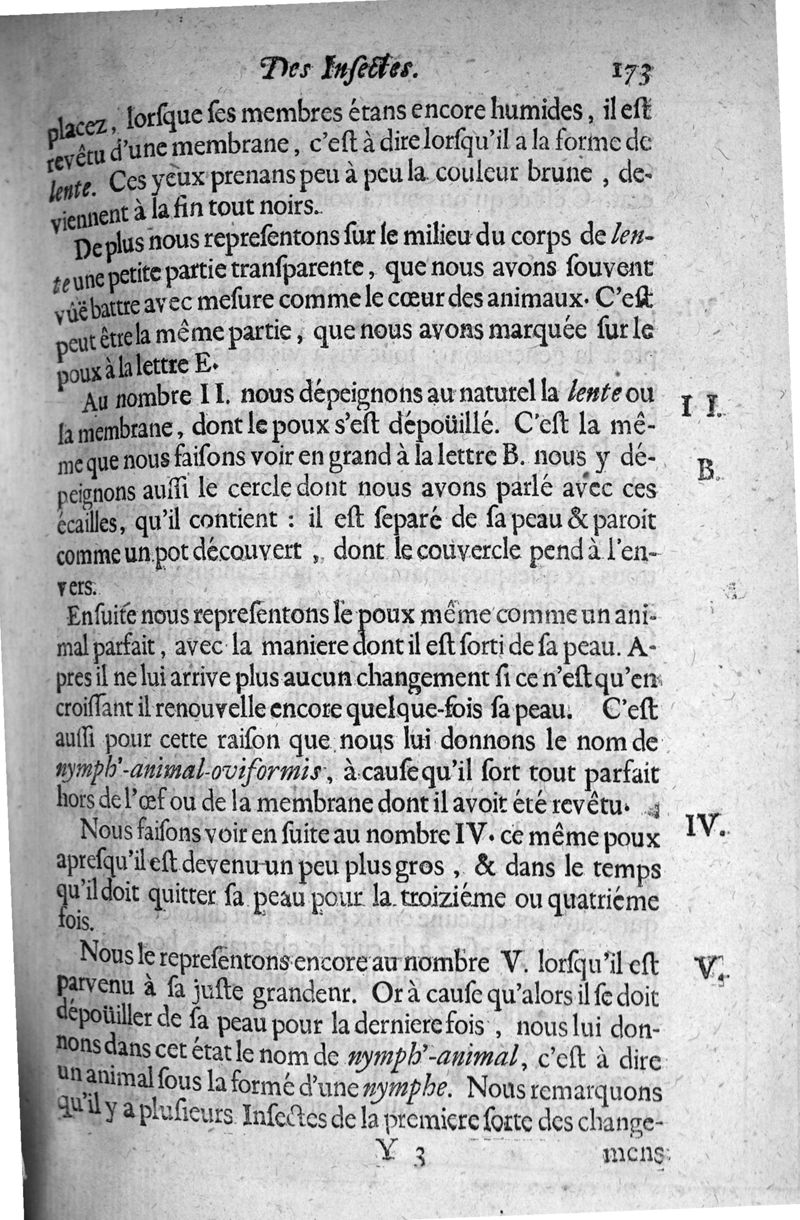 Des Inſectes. 173
placez, lorſque ſes membres étans encore humides, il eſt
revêtu d'une membrane, c'eſt à dire lorſqu'il a la forme de
lente. Ces yeux prenans peu à peu la couleur brune, de-
viennent à la fin tout noirs.
De plus nous repreſentons ſur le milieu du corps de len-
te une petite partie tranſparente, que nous avons ſouvent
vûë battre avec meſure comme le cœur des animaux. C'eſt
peut être la même partie, que nous avons marquée ſur le
poux à la lettre E.
Au nombre II. nous dépeignons au naturel la lente ou I I.
la membrane, dont le poux s'eſt dépoüillé. C'eſt la mê-
me que nous faiſons voir en grand à la lettre B. nous y dé- B.
peignons auſſi le cercle dont nous avons parlé avec ces
écailles, qu'il contient : il eſt ſeparé de ſa peau & paroit
comme un pot découvert, dont le couvercle pend à l'en-
vers.
Enſuite nous repreſentons le poux même comme un ani-
mal parfait, avec la maniere dont il eſt ſorti de ſa peau. A-
pres il ne lui arrive plus aucun changement ſi ce n'eſt qu'en
croiſſant il renouvelle encore quelque-fois ſa peau. C'eſt
auſſi pour cette raiſon que nous lui donnons le nom de
nymph'-animal-oviformis, à cauſe qu'il ſort tout parfait
hors de l'œf ou de la membrane dont il avoit été revêtu.
Nous faiſons voir en ſuite au nombre IV. ce même poux IV.
apreſqu'il eſt devenu un peu plus gros, & dans le temps
qu'il doit quitter ſa peau pour la troiziéme ou quatriéme
fois.
Nous le repreſentons encore au nombre V. lorſqu'il eſt V.
parvenu à ſa juſte grandenr. Or à cauſe qu'alors il ſe doit
dépoüiller de ſa peau pour la derniere fois, nous lui don-
nons dans cet état le nom de nymph'-animal, c'eſt à dire
un animal ſous la formé d'une nymphe. Nous remarquons
qu'il y a pluſieurs Inſectes de la premiere ſorte des change-
Y 3 mens